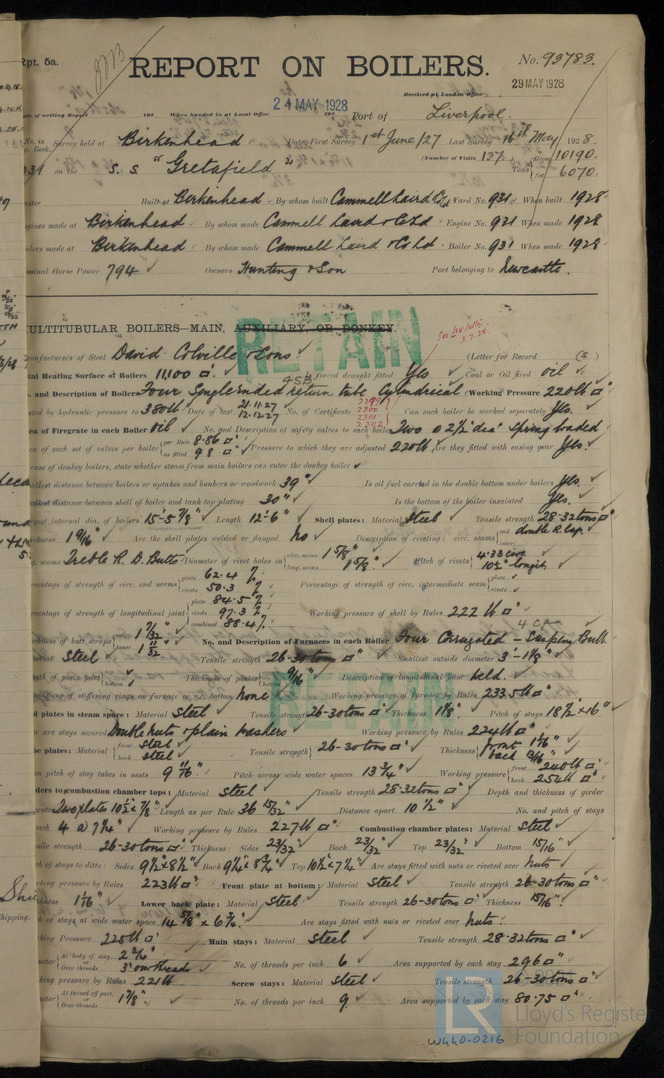 Rpt. 5a.
REPORT ON BOILERS.
No. 93783.
29 MAY 1928
Received at London Office
24 MAY 1928
of writing Report 192 When handed in at Local Office 192 Port of Liverpool
No. in Survey held at Birkenhead Date First Survey 1st June/27 Last Survey 16th May 1928
Book. (Number of Visits 137 Gross 10190
on the S.S "Gretafield" Tons Net 6070
Built at Birkenhead By whom built Cammell Laird & Co Ld Yard No. 931 When built 1928
gines made at Birkenhead By whom made Cammell Laird & Co Ld Engine No. 931 When made 1928
ilers made at Birkenhead By whom made Cammell Laird & Co Ld Boiler No. 931 When made 1928
minal Horse Power 794 Owners Hunting & Son Port belonging to Newcastle
ULTITUBULAR BOILERS—MAIN, AUXILIARY, OR DONKEY.
RETAIN
nufacturers of Steel David Colville & Sons (Letter for Record (S)
tal Heating Surface of Boilers 11,100 □' forced draught fitted Yes Coal or Oil fired oil
. and Description of Boilers Four Single ended return tube Cylindrical Working Pressure 220 lb □"
ted by hydraulic pressure to 380 lb Date of test 21.11.27 12.12.27 No. of Certificate 2299 2300 2301 2302 Can each boiler be worked separately Yes.
ea of Firegrate in each Boiler oil No. and Description of safety valves to each boiler Two @ 2½" dia' spring loaded
ea of each set of valves per boiler per Rule 8.86 □" as fitted 9.8 □" Pressure to which they are adjusted 220 lb Are they fitted with easing gear Yes.
case of donkey boilers, state whether steam from main boilers can enter the donkey boiler
allest distance between boilers or uptakes and bunkers or woodwork 39" Is oil fuel carried in the double bottom under boilers Yes.
allest distance between shell of boiler and tank top plating 30" Is the bottom of the boiler insulated Yes.
gest internal dia. of boilers 15'-5⅞" Length 12'-6" Shell plates: Material Steel Tensile strength 28-32 tons □"
ickness 1 9/16" Are the shell plates welded or flanged no Description of riveting: circ. seams end double R. lap
g. seams Treble R. D. Butts Diameter of rivet holes in circ. seams 1⅝" long. seams 1⅝" Pitch of rivets 4.33 circ 10½" longit.
rcentage of strength of circ. end seams plate 62.4 % rivets 50.3 % Percentage of strength of circ. intermediate seam plate rivets
rcentage of strength of longitudinal joint plate 84.5 % rivets 97.3 % combined 88.4 % Working pressure of shell by Rules 222 lb □"
ickness of butt straps outer 1 7/32" inner 1 11/32" No. and Description of Furnaces in each Boiler Four Corrugated
terial Steel Tensile strength 26-30 tons □" Smallest outside diameter 3'-1⅛"
gth of plain part Thickness of plates 9/16" Description of longitudinal joint weld.
ensions of stiffening rings on furnace or c.c. bottom none Working pressure of furnace by Rules 233.5 lb □"
RETAIN
d plates in steam space: Material Steel Tensile strength 26-30 tons □" Thickness 1⅛" Pitch of stays 18½" × 16"
are stays secured Double nuts & plain washers Working pressure by Rules 224 lb □"
be plates: Material front Steel back Steel Tensile strength 26-30 tons □" Thickness front 1 1/16" back 13/16"
an pitch of stay tubes in nests 9 7/16" Pitch across wide water spaces 13¾" Working pressure front 240 lb □" back 254 lb □"
ders to combustion chamber tops: Material Steel Tensile strength 28-32 tons □" Depth and thickness of girder
centre Two plates 10½" × ⅞" Length as per Rule 36 15/32" Distance apart 10½" No. and pitch of stays
each 4 @ 7¼" Working pressure by Rules 227 lb □" Combustion chamber plates: Material Steel
sile strength 26-30 tons □" Thickness: Sides 23/32" Back 23/32" Top 23/32" Bottom 15/16"
ch of stays to ditto: Sides 9½" × 8½" Back 9¼" × 8¾" Top 10½" × 7¼" Are stays fitted with nuts or riveted over nuts
king pressure by Rules 223 lb □" Front plate at bottom: Material Steel Tensile strength 26-30 tons □"
ckness 1 1/16" Lower back plate: Material Steel Tensile strength 26-30 tons □" Thickness 15/16"
h of stays at wide water space 14⅝" × 6¾" Are stays fitted with nuts or riveted over nuts
king Pressure 225 lb □" Main stays: Material Steel Tensile strength 28-32 tons □"
meter At body of stay, 2¾" or Over threads 3" over threads No. of threads per inch 6 Area supported by each stay 296 □"
king pressure by Rules 221 lb Screw stays: Material Steel Tensile strength 26-30 tons □"
meter At turned off part, 1⅞" or Over threads No. of threads per inch 9 Area supported by each stay 80.75 □"
LR
Lloyd's Register
Foundation
W440-0216